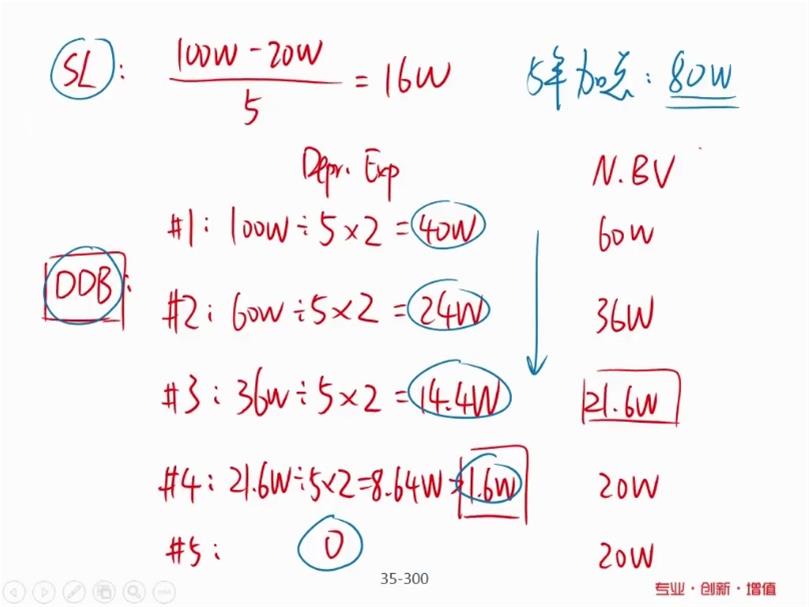 SL: (100W - 20W) / 5 = 16W 5年加总: 80W
Depr. Exp N.BV
#1: 100W ÷ 5 × 2 = 40W 60W
DDB:
#2: 60W ÷ 5 × 2 = 24W 36W
#3: 36W ÷ 5 × 2 = 14.4W 21.6W
#4: 21.6W ÷ 5 × 2 = 8.64W → 1.6W 20W
#5: 0 20W
35-300
专业·创新·增值